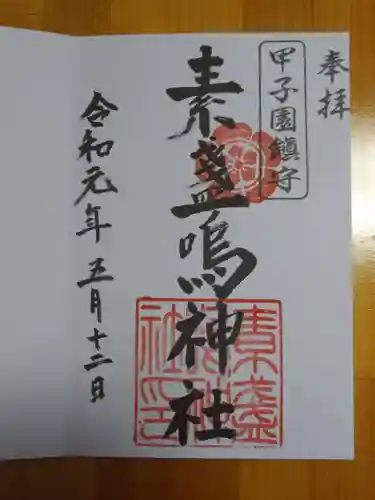 奉拝
甲子園鎮守
素盞嗚神社
素盞
嗚神
社印
令和元年五月十二日